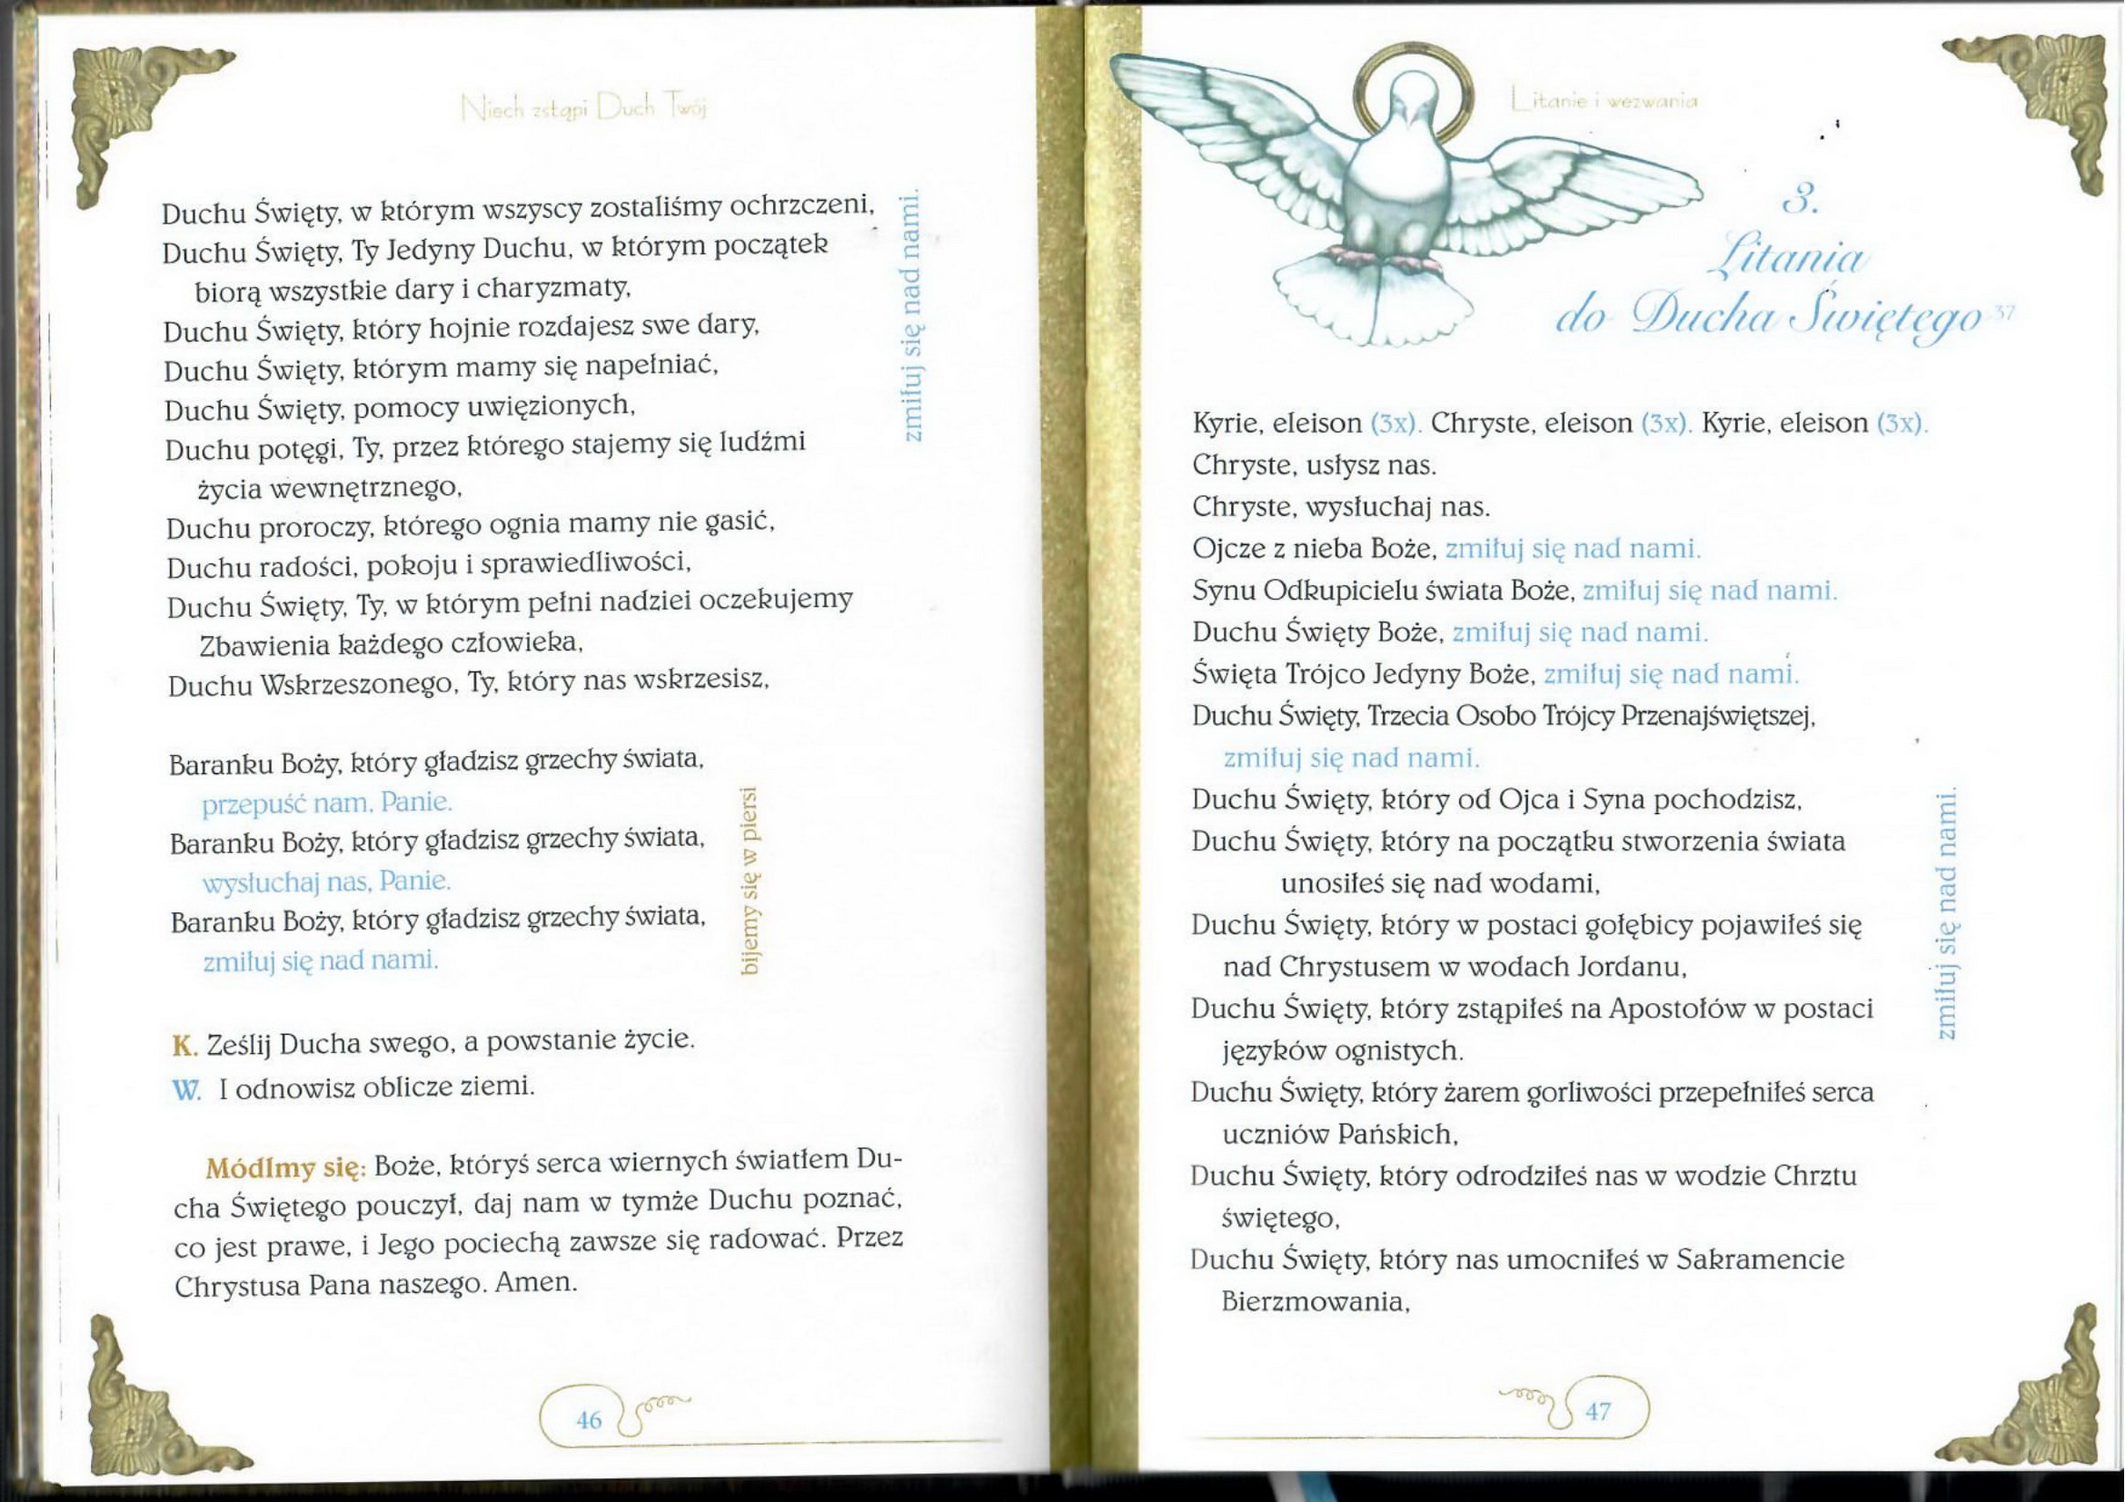 Niech zstąpi Duch Twój
Duchu Święty, w którym wszyscy zostaliśmy ochrzczeni,
Duchu Święty, Ty Jedyny Duchu, w którym początek
biorą wszystkie dary i charyzmaty,
Duchu Święty, który hojnie rozdajesz swe dary,
Duchu Święty, którym mamy się napełniać,
Duchu Święty, pomocy uwięzionych,
Duchu potęgi, Ty, przez którego stajemy się ludźmi
życia wewnętrznego,
Duchu proroczy, którego ognia mamy nie gasić,
Duchu radości, pokoju i sprawiedliwości,
Duchu Święty, Ty, w którym pełni nadziei oczekujemy
Zbawienia każdego człowieka,
Duchu Wskrzeszonego, Ty, który nas wskrzesisz,
zmiłuj się nad nami.
Baranku Boży, który gładzisz grzechy świata,
przepuść nam, Panie.
Baranku Boży, który gładzisz grzechy świata,
wysłuchaj nas, Panie.
Baranku Boży, który gładzisz grzechy świata,
zmiłuj się nad nami.
bijemy się w piersi
K. Ześlij Ducha swego, a powstanie życie.
W. I odnowisz oblicze ziemi.
Módlmy się: Boże, któryś serca wiernych światłem Du-
cha Świętego pouczył, daj nam w tymże Duchu poznać,
co jest prawe, i Jego pociechą zawsze się radować. Przez
Chrystusa Pana naszego. Amen.
46
Litanie i wezwania
3.
Litania
do Ducha Świętego 37
Kyrie, eleison (3x). Chryste, eleison (3x). Kyrie, eleison (3x).
Chryste, usłysz nas.
Chryste, wysłuchaj nas.
Ojcze z nieba Boże, zmiłuj się nad nami.
Synu Odkupicielu świata Boże, zmiłuj się nad nami.
Duchu Święty Boże, zmiłuj się nad nami.
Święta Trójco Jedyny Boże, zmiłuj się nad nami.
Duchu Święty, Trzecia Osobo Trójcy Przenajświętszej,
zmiłuj się nad nami.
Duchu Święty, który od Ojca i Syna pochodzisz,
Duchu Święty, który na początku stworzenia świata
unosiłeś się nad wodami,
Duchu Święty, który w postaci gołębicy pojawiłeś się
nad Chrystusem w wodach Jordanu,
Duchu Święty, który zstąpiłeś na Apostołów w postaci
języków ognistych.
Duchu Święty, który żarem gorliwości przepełniłeś serca
uczniów Pańskich,
Duchu Święty, który odrodziłeś nas w wodzie Chrztu
świętego,
Duchu Święty, który nas umocniłeś w Sakramencie
Bierzmowania,
zmiłuj się nad nami.
47